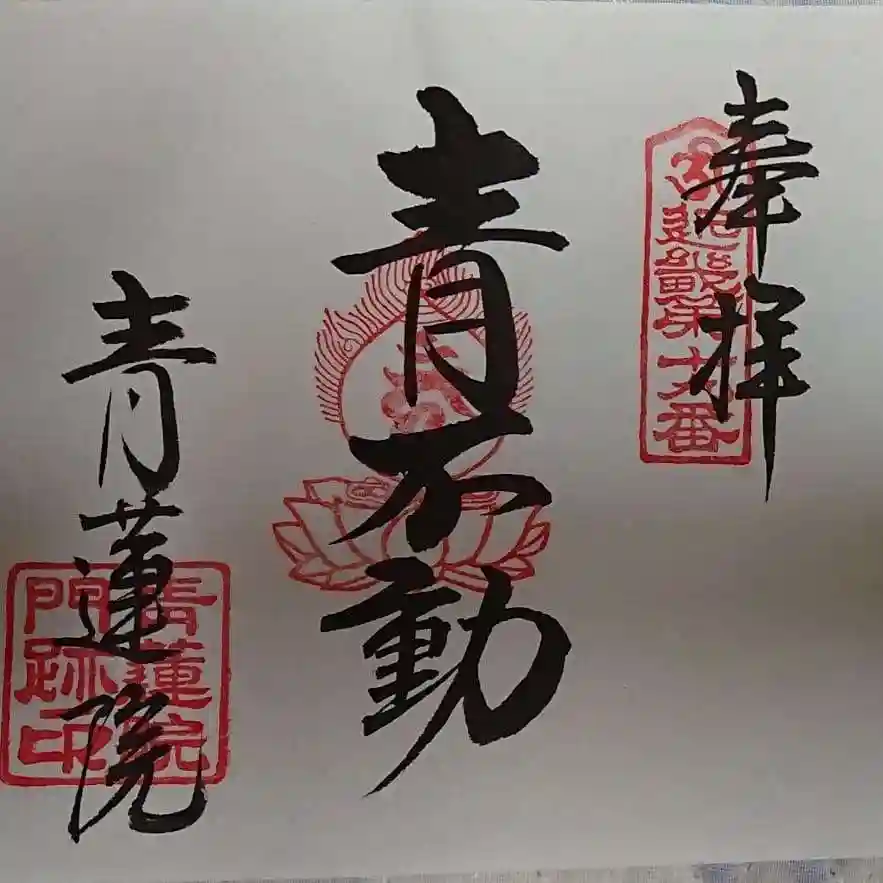 奉拝
近畿第十九番
青不動
青蓮院
青蓮院
門跡印